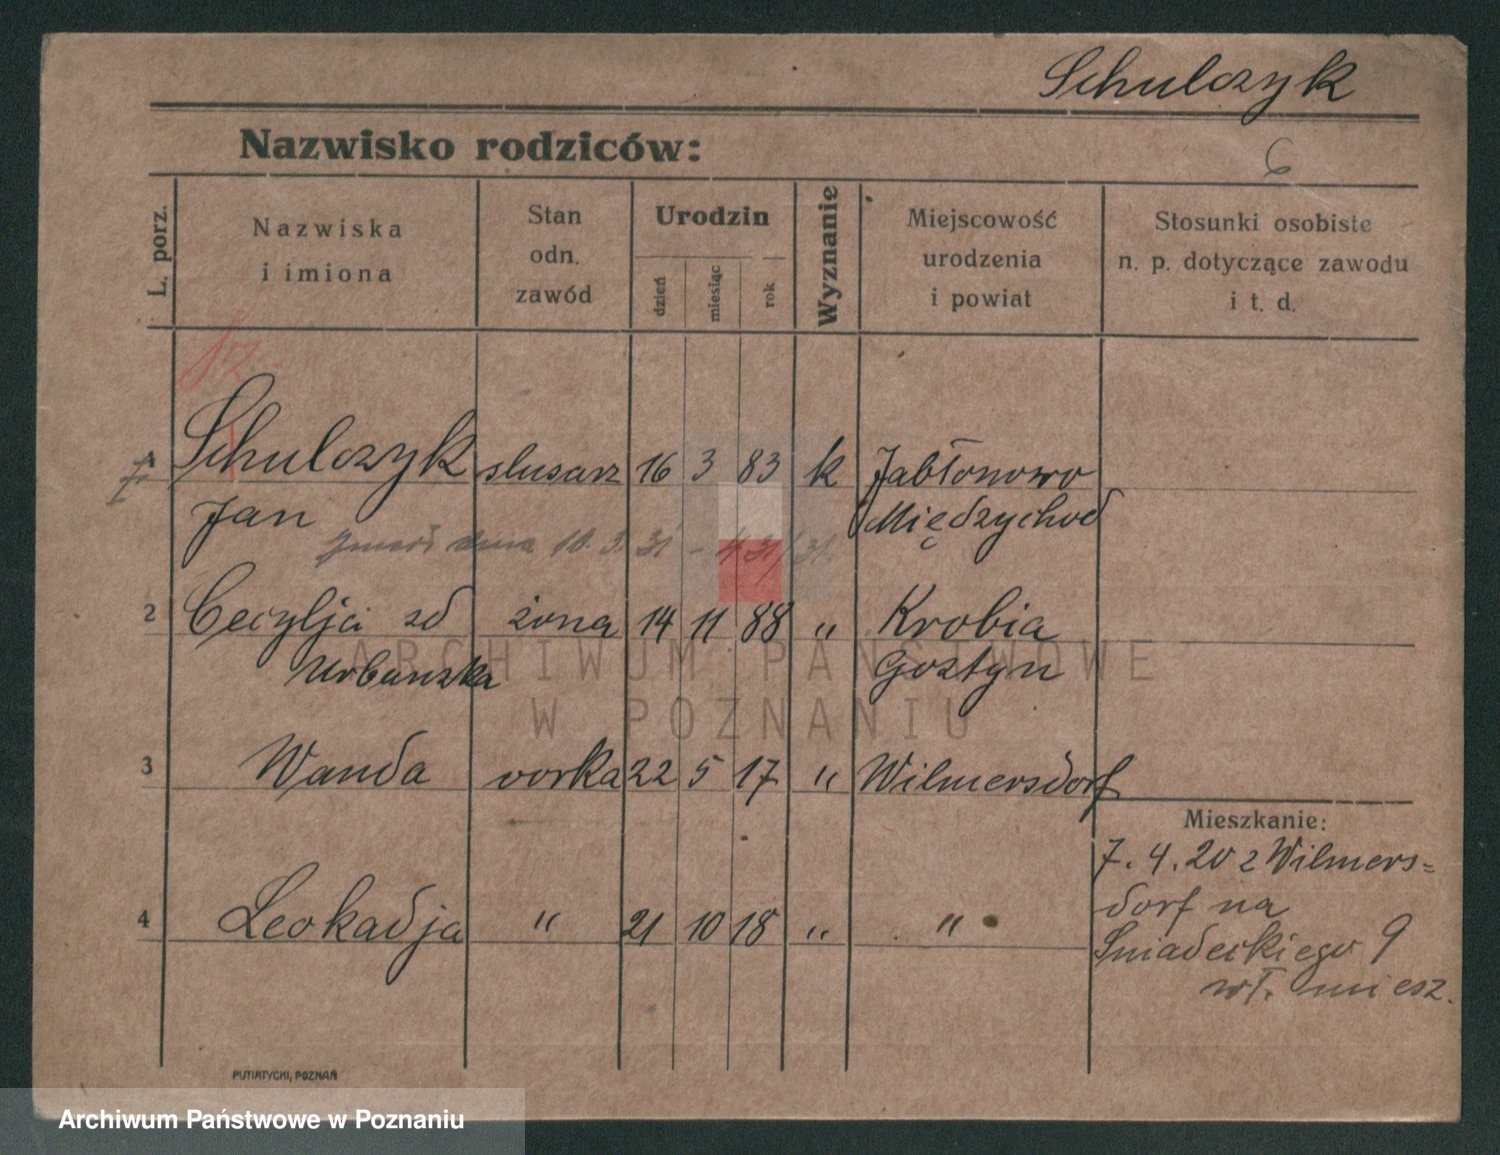 Schulczyk
Nazwisko rodziców:
6
L. porz.
Nazwiska
i imiona
Stan
odn.
zawód
Urodzin
dzień
miesiąc
rok
Wyznanie
Miejscowość
urodzenia
i powiat
Stosunki osobiste
n. p. dotyczące zawodu
i t. d.
1 Schulczyk slusarz 16 3 83 k Jabłonowo
Jan Międzychod
zmarł dnia 10. 3. 31 -
2 Cecylja zd żona 14 11 88 " Krobia
Urbanska Gostyn
ARCHIWUM PAŃSTWOWE
W POZNANIU
3 Wanda corka 22 5 17 " Wilmersdorf
Mieszkanie:
7. 4. 20 z Wilmers=
dorf na
4 Leokadja " 21 10 18 " "
Sniadeckiego 9
wł. miesz.
PUTIATYCKI, POZNAŃ
Archiwum Państwowe w Poznaniu